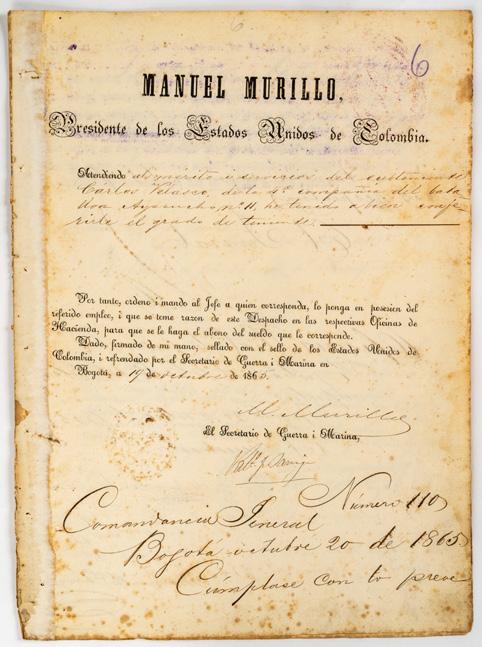 6
MANUEL MURILLO,
Presidente de los Estados Unidos de Colombia.
Atendiendo al mérito i servicios del subteniente
Carlos de la 4ª compañia del bata
llon Ayacucho nº 11, ha tenido a bien confe
rirle el grado de teniente.
Por tanto, ordeno i mando al Jefe a quien corresponda, lo ponga en posesion del
referido empleo, i que se tome razon de este Despacho en las respectivas Oficinas de
Hacienda, para que se le haga el abono del sueldo que le corresponde.
Dado, firmado de mi mano, sellado con el sello de los Estados Unidos de
Colombia, i refrendado por el Secretario de Guerra i Marina en
Bogotá, a 19 de octubre de 1865.
M. Murillo
El Secretario de Guerra i Marina,
Número 110
Comandancia Jeneral
Bogotá octubre 20 de 1865
Cúmplase con lo preve